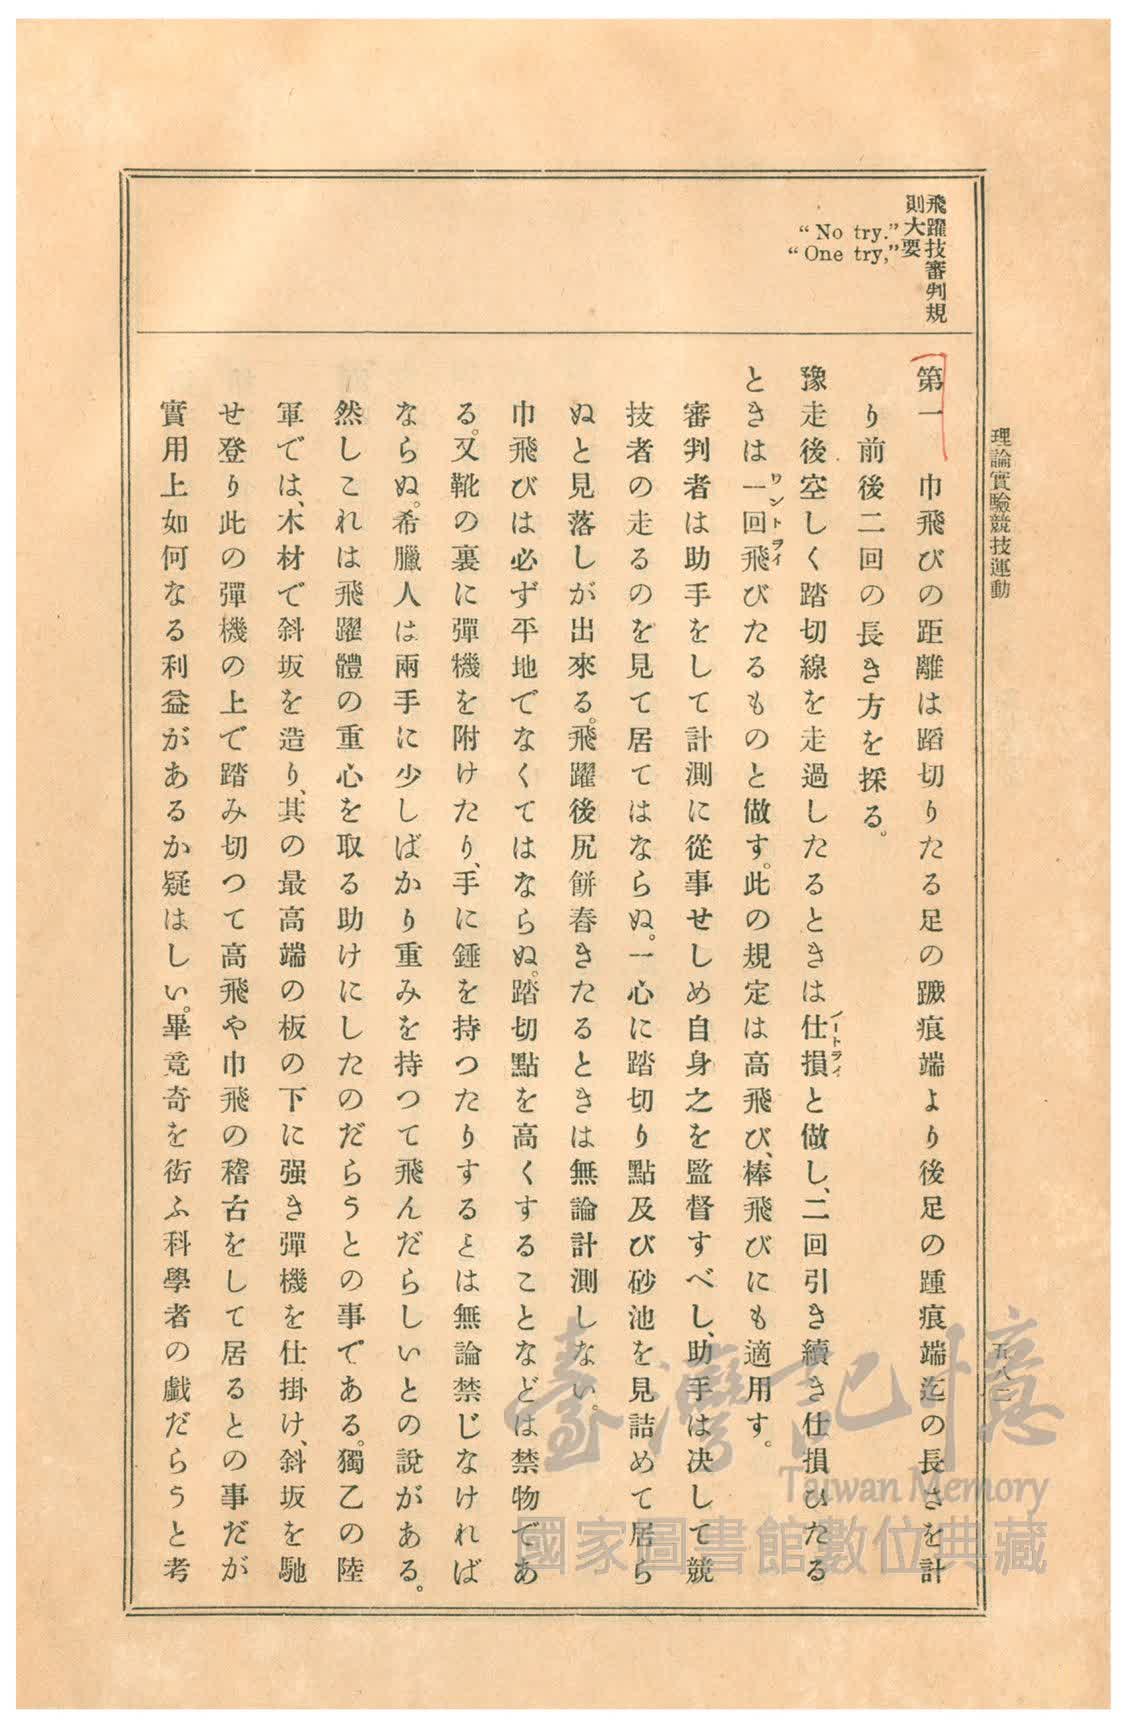 理論實驗競技運動
五八二
飛躍技審判規
則大要
“No try.”
“One try,”
第一　巾飛びの距離は蹈切りたる足の蹶痕端より後足の踵痕端迄の長さを計
り前後二回の長き方を採る。
豫走後空しく踏切線を走過したるときは仕損ノートライと做し、二回引き續き仕損ひたる
ときは一回飛ワントライびたるものと做す。此の規定は高飛び、棒飛びにも適用す。
審判者は助手をして計測に從事せしめ自身之を監督すべし、助手は決して競
技者の走るのを見て居てはならぬ。一心に踏切り點及び砂池を見詰めて居ら
ぬと見落しが出來る。飛躍後尻餠舂きたるときは無論計測しない。
巾飛びは必ず平地でなくてはならぬ。踏切點を高くすることなどは禁物であ
る。又靴の裏に彈機を附けたり、手に錘を持つたりするとは無論禁じなければ
ならぬ。希臘人は兩手に少しばかり重みを持つて飛んだらしいとの說がある。
然しこれは飛躍體の重心を取る助けにしたのだらうとの事である。獨乙の陸
軍では、木材で斜坂を造り、其の最高端の板の下に强き彈機を仕掛け、斜坂を馳
せ登り此の彈機の上で踏み切つて高飛や巾飛の稽古をして居るとの事だが
實用上如何なる利益があるか疑はしい。畢竟奇を衒ふ科學者の戲だらうと考
臺灣記憶
Taiwan Memory
國家圖書館數位典藏